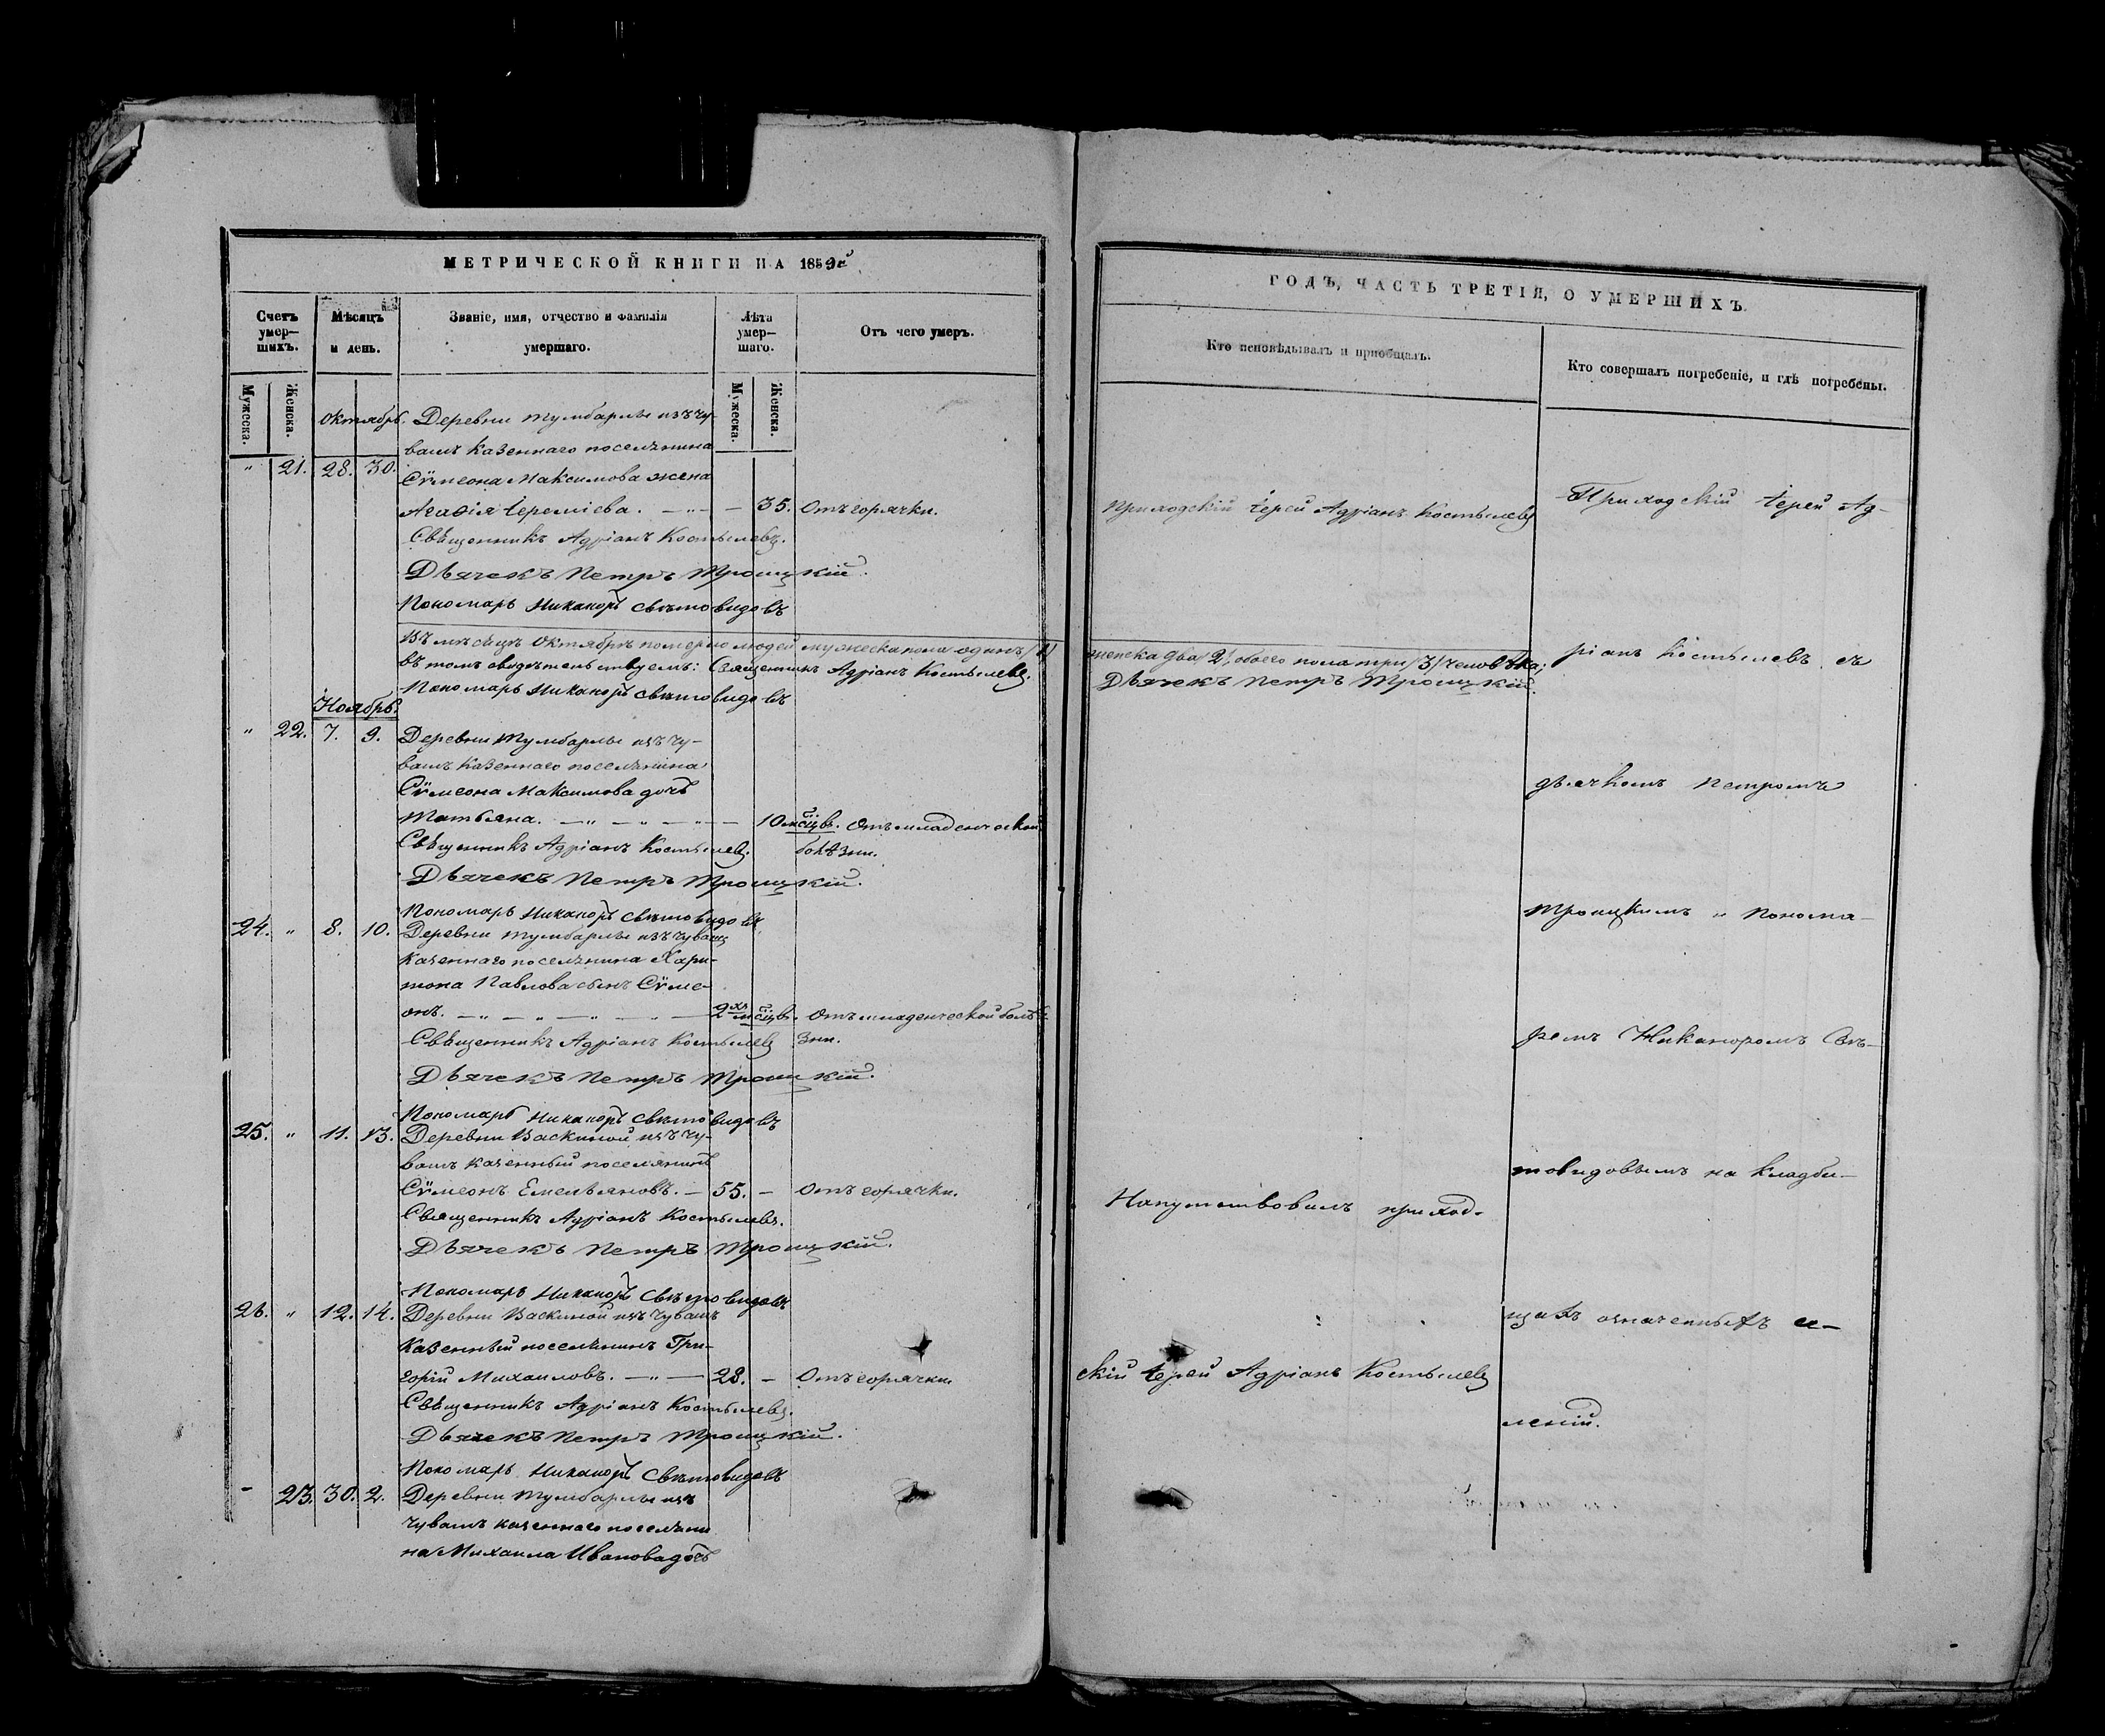 МЕТРИЧЕСКОЙ КНИГИ НА 1859й
Счетъ умер—шихъ.
Мѣсяцъ и день.
Званіе, имя, отчество и фамилія умершаго.
Лѣта умер—шаго.
Отъ чего умеръ.
Мужеска.
Женска.
Мужеска.
Женска.
Октябрь. Деревни Тумбарлы изъ чу-
вашъ казеннаго поселянина
" 21. 28. 30. Сѵмеона Максимова жена
Агафія Іереміева. — " — — 35. Отъ горячки.
Священникъ Адріанъ Костылевъ.
Дьячекъ Петръ Троицкій.
Пономарь Никаноръ Свѣтовидовъ
Въ мѣсяцѣ Октябрѣ померло людей мужеска пола одинъ /1/
въ томъ свидѣтельствуемъ: Священникъ Адріанъ Костылевъ.
Пономарь Никаноръ Свѣтовидовъ
Ноябрь.
" 22. 7. 9. Деревни Тумбарлы изъ чу-
вашъ казеннаго поселянина
Сѵмеона Максимова дочь
Татьяна. — " — " — " — 10 мсцвъ. Отъ младенческой
Священникъ Адріанъ Костылевъ. болѣзни.
Дьячекъ Петръ Троицкій.
Пономарь Никаноръ Свѣтовидовъ
24. " 8. 10. Деревни Тумбарлы изъ чувашъ
казеннаго поселянина Хари-
тона Павлова сынъ Сѵме-
онъ. — " — " — " — " — 2хъ мсцвъ. Отъ младенческой болѣ-
Священникъ Адріанъ Костылевъ зни.
Дьячекъ Петръ Троицкій.
Пономарь Никаноръ Свѣтовидовъ
25. " 11. 13. Деревни Васкиной изъ чу-
вашъ казенный поселянинъ
Сѵмеонъ Емельяновъ. — 55. — Отъ горячки.
Священникъ Адріанъ Костылевъ.
Дьячекъ Петръ Троицкій.
Пономарь Никаноръ Свѣтовидовъ
26. " 12. 14. Деревни Васкиной изъ чувашъ
казенный поселянинъ Гри-
горій Михаиловъ. — " — 28. — Отъ горячки
Священникъ Адріанъ Костылевъ.
Дьячекъ Петръ Троицкій.
Пономарь Никаноръ Свѣтовидовъ
- 23. 30. 2. Деревни Тумбарлы изъ
чувашъ казеннаго поселяни
на Михаила Иванова дочь
ГОДЪ, ЧАСТЬ ТРЕТІЯ, О УМЕРШИХЪ.
Кто исповѣдывалъ и пріобщалъ.
Кто совершалъ погребеніе, и гдѣ погребены.
Приходскій Іерей Адріанъ Костылевъ
женска два /2/, обоего пола три /3/ человѣка;
Дьячекъ Петръ Троицкій.
Напутствовалъ приход-
скій Іерей Адріанъ Костылевъ
Приходскій Іерей Ад-
ріанъ Костылевъ съ
дьячкомъ Петромъ
Троицкимъ и Понома-
ремъ Никаноромъ Свѣ-
товидовымъ на кладби-
щахъ означенныхъ се-
леній.